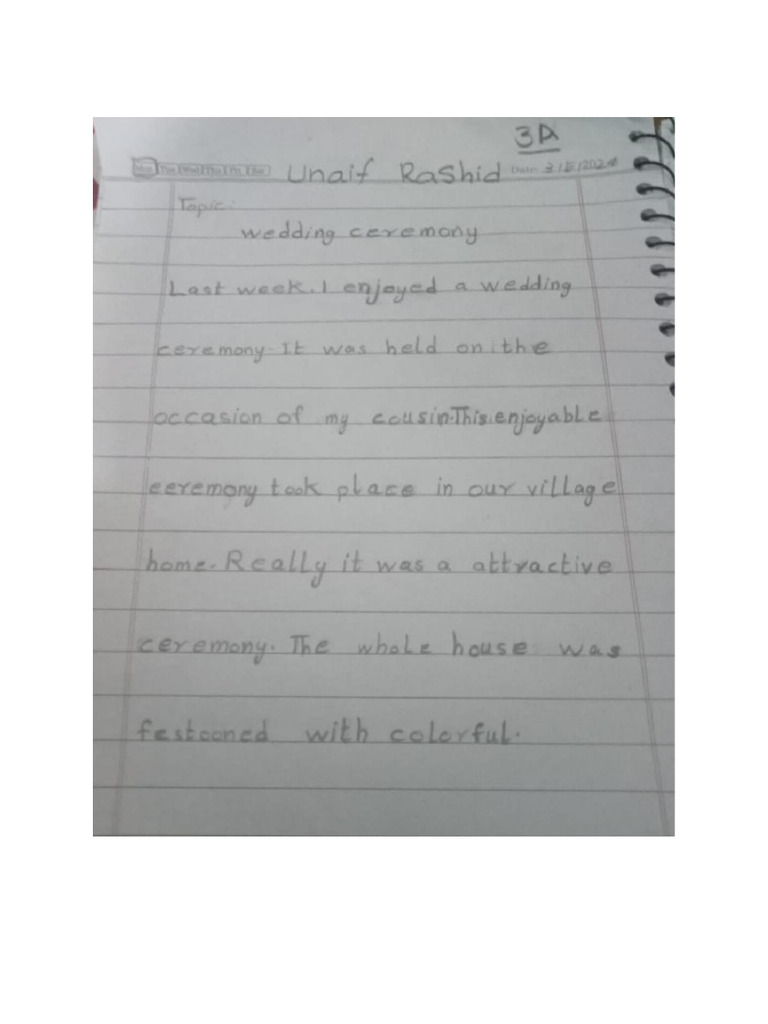 3A
Mon Tue Wed Thu Fri Sat Unaif Rashid Date:
Topic:
wedding ceremony
Last week. I enjoyed a wedding
ceremony. It was held on the
occasion of my cousin. This enjoyable
ceremony took place in our village
home. Really it was a attractive
ceremony. The whole house was
festooned with colorful.